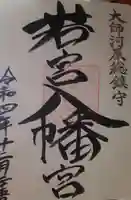 大師河原総鎮守
若宮八幡宮
令和四年十二月三十